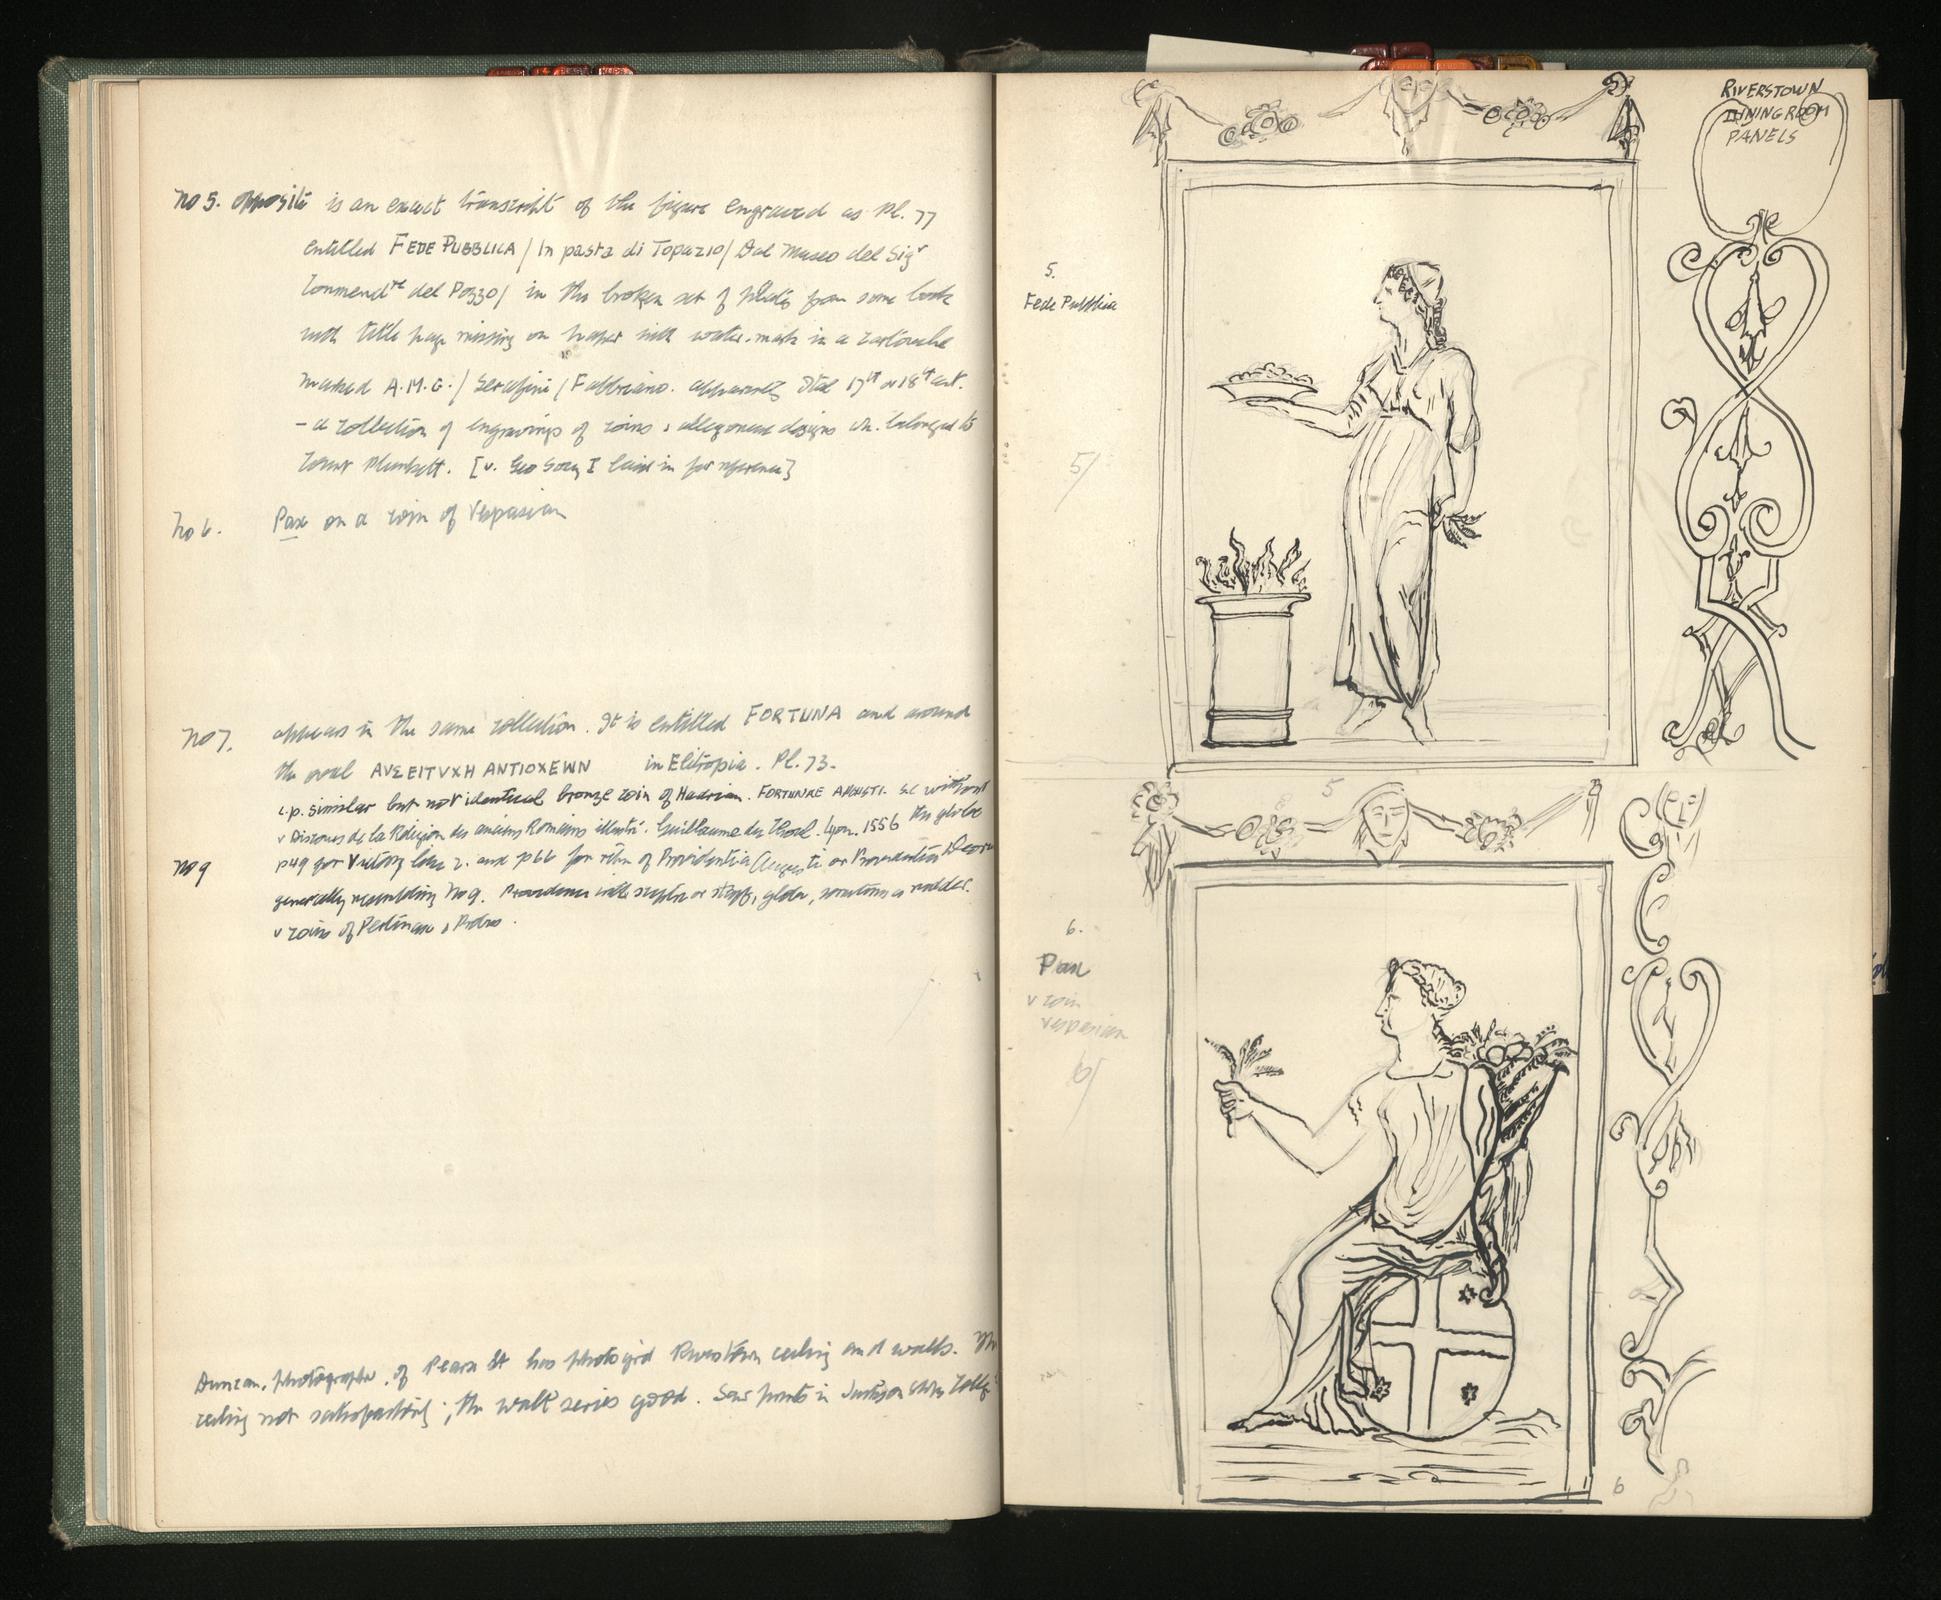 No 5. opposite is an exact transcript of the figure engraved as Pl. 77
entitled FEDE PUBBLICA / In pasta di Topazio / Dal Museo del Sigr
Commendre del Pozzo / in the broken set of plates from some book
with title page missing on paper with water-mark in a cartouche
marked A.M.G. / Serafini / Fabbriano. apparently Ital 17th or 18th cent.
- a collection of engravings of coins & allegorical designs wh. belonged to
Count Plunkett. [v. Geo Socy I laid in for reference]
No 6. Pax on a coin of Vespasian
No 7. appears in the same collection. It is entitled FORTUNA and around
the oval ΑΥΣΕΙΤVΧΗ ΑΝΤΙΟΧΕWΝ in Elitropia. Pl. 73.
c.p. similar but not identical bronze coin of Hadrian. FORTUNAE AUGUSTI. S.C without
v Discours de la Religion des anciens Romains illustré. Guillaume du Choul. Lyon. 1556 the globe
No 9 p49 for Victory and p66 for of Providentia Augusti or Providentia Deor
generally resembling No 9. Providence with sceptre or staff, globe, sometimes a rudder.
v coins of Pertinax &
Duncan, photographer, of Pearse St has photogrd Riverstown ceiling and walls. The
ceiling not satisfactory; the walls series good. Saw prints in
RIVERSTOWN
DINING ROOM
PANELS
5.
Fede Pubblica
5/
5
6.
Pax
v coin
Vespasian
6/
6